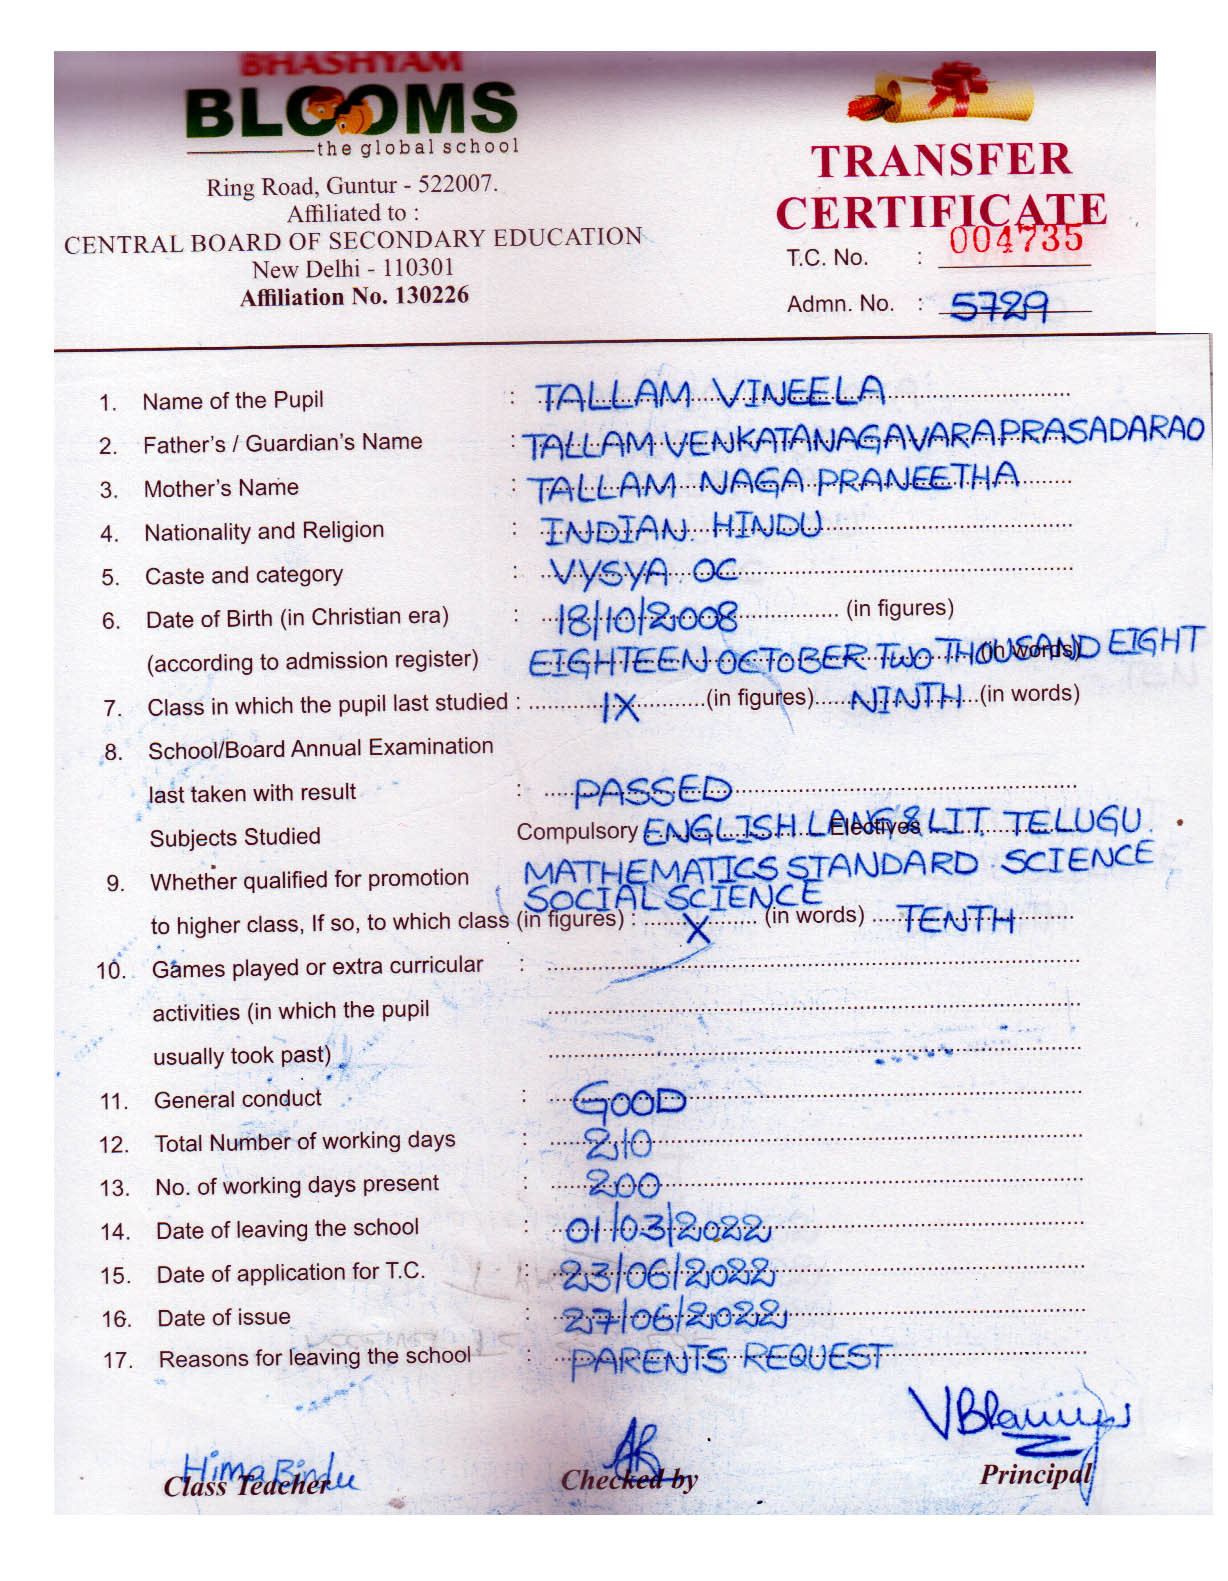 BHASHYAM
BLOOMS
the global school
Ring Road, Guntur - 522007.
Affiliated to :
CENTRAL BOARD OF SECONDARY EDUCATION
New Delhi - 110301
Affiliation No. 130226
TRANSFER
CERTIFICATE
T.C. No. : 004735
Admn. No. : 5729
1. Name of the Pupil : TALLAM VINEELA
2. Father's / Guardian's Name : TALLAM VENKATANAGAVARAPRASADARAO
3. Mother's Name : TALLAM NAGA PRANEETHA
4. Nationality and Religion : INDIAN. HINDU
5. Caste and category : VYSYA. OC
6. Date of Birth (in Christian era) : 18/10/2008 (in figures)
(according to admission register) EIGHTEEN OCTOBER TWO THOUSAND EIGHT (in words)
7. Class in which the pupil last studied : IX (in figures) NINTH (in words)
8. School/Board Annual Examination
last taken with result : PASSED
Subjects Studied Compulsory ENGLISH LANG & LIT, TELUGU. Electives
MATHEMATICS STANDARD. SCIENCE
9. Whether qualified for promotion
SOCIAL SCIENCE
to higher class, If so, to which class (in figures) : X (in words) TENTH
10. Games played or extra curricular :
activities (in which the pupil
usually took past)
11. General conduct : GOOD
12. Total Number of working days : 210
13. No. of working days present : 200
14. Date of leaving the school : 01/03/2022
15. Date of application for T.C. : 23/06/2022
16. Date of issue : 27/06/2022
17. Reasons for leaving the school : PARENTS REQUEST
Hima Bindu
Class Teacher
Checked by
Principal